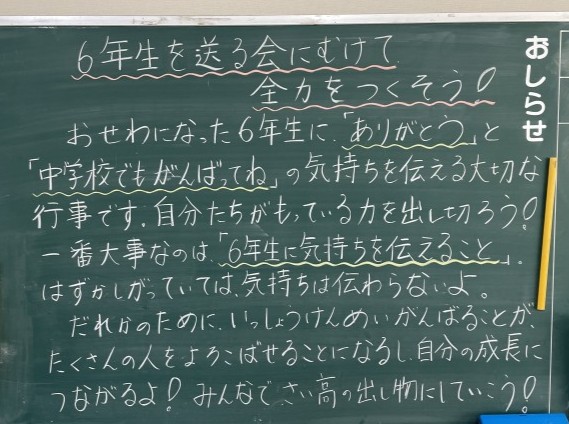 おしらせ
6年生を送る会にむけて
全力をつくそう!
おせわになった6年生に、「ありがとう」と
「中学校でもがんばってね」の気持ちを伝える大切な
行事です。自分たちがもっている力を出し切ろう!
一番大事なのは、「6年生に気持ちを伝えること」。
はずかしがっていては、気持ちは伝わらないよ。
だれかのために、いっしょうけんめいがんばることが、
たくさんの人をよろこばせることになるし、自分の成長に
つながるよ!みんなでさい高の出し物にしていこう!